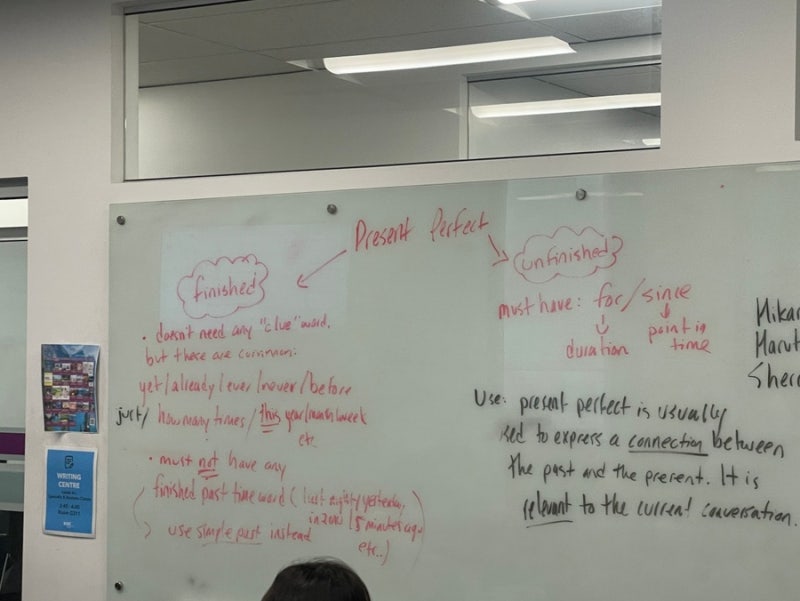 Present Perfect
finished
• doesn't need any "clue" word.
but these are common:
yet/already/ever/never/before
just/ how many times/ this year/month/week
etc
• must not have any
finished past time word (last night/yesterday,
in 2010 / 5 minutes ago
etc..)
use simple past instead
unfinished
must have: for/since
duration
point in
time
Use: present perfect is usually
used to express a connection between
the past and the present. It is
relevant to the current conversation.
WRITING
CENTRE